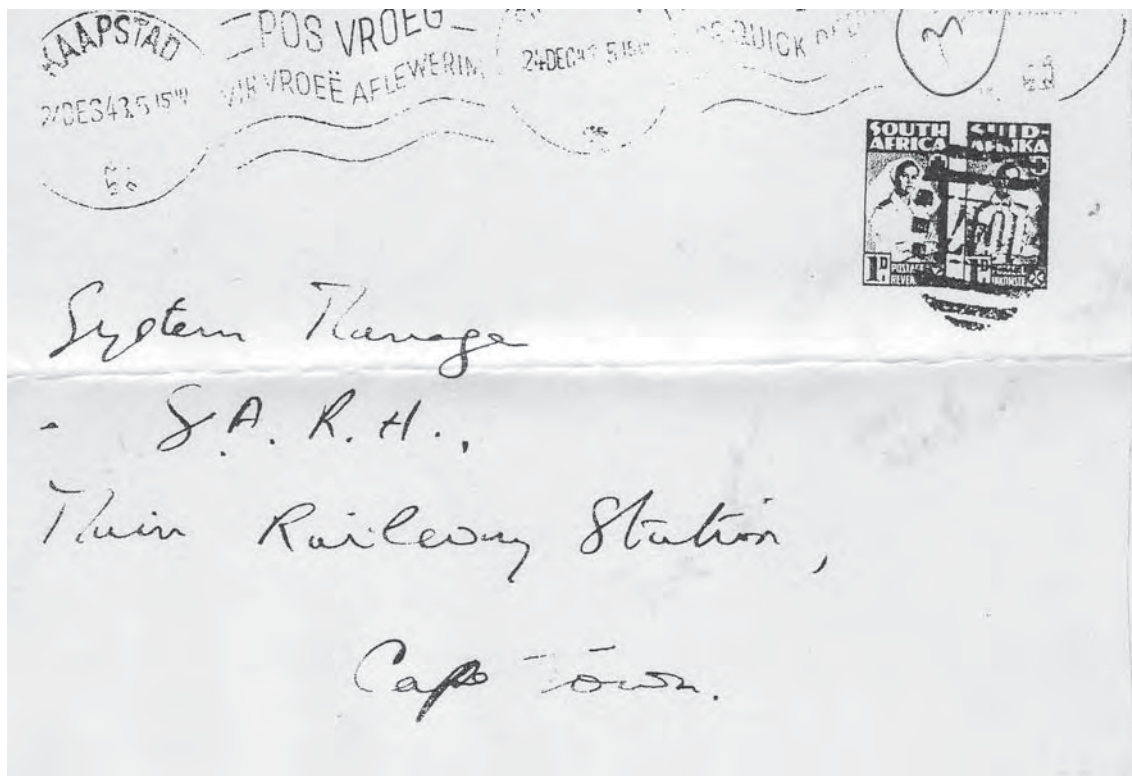 KAAPSTAD
POS VROEG
VIR VROEË AFLEWERING
24DES43 5 15
24DEC43 5 15
QUICK
3
SOUTH AFRICA
SUID-AFRIKA
1D
POSTAGE
REVEN
1D
System Manager
S.A.R.H.,
Main Railway Station,
Cape Town.